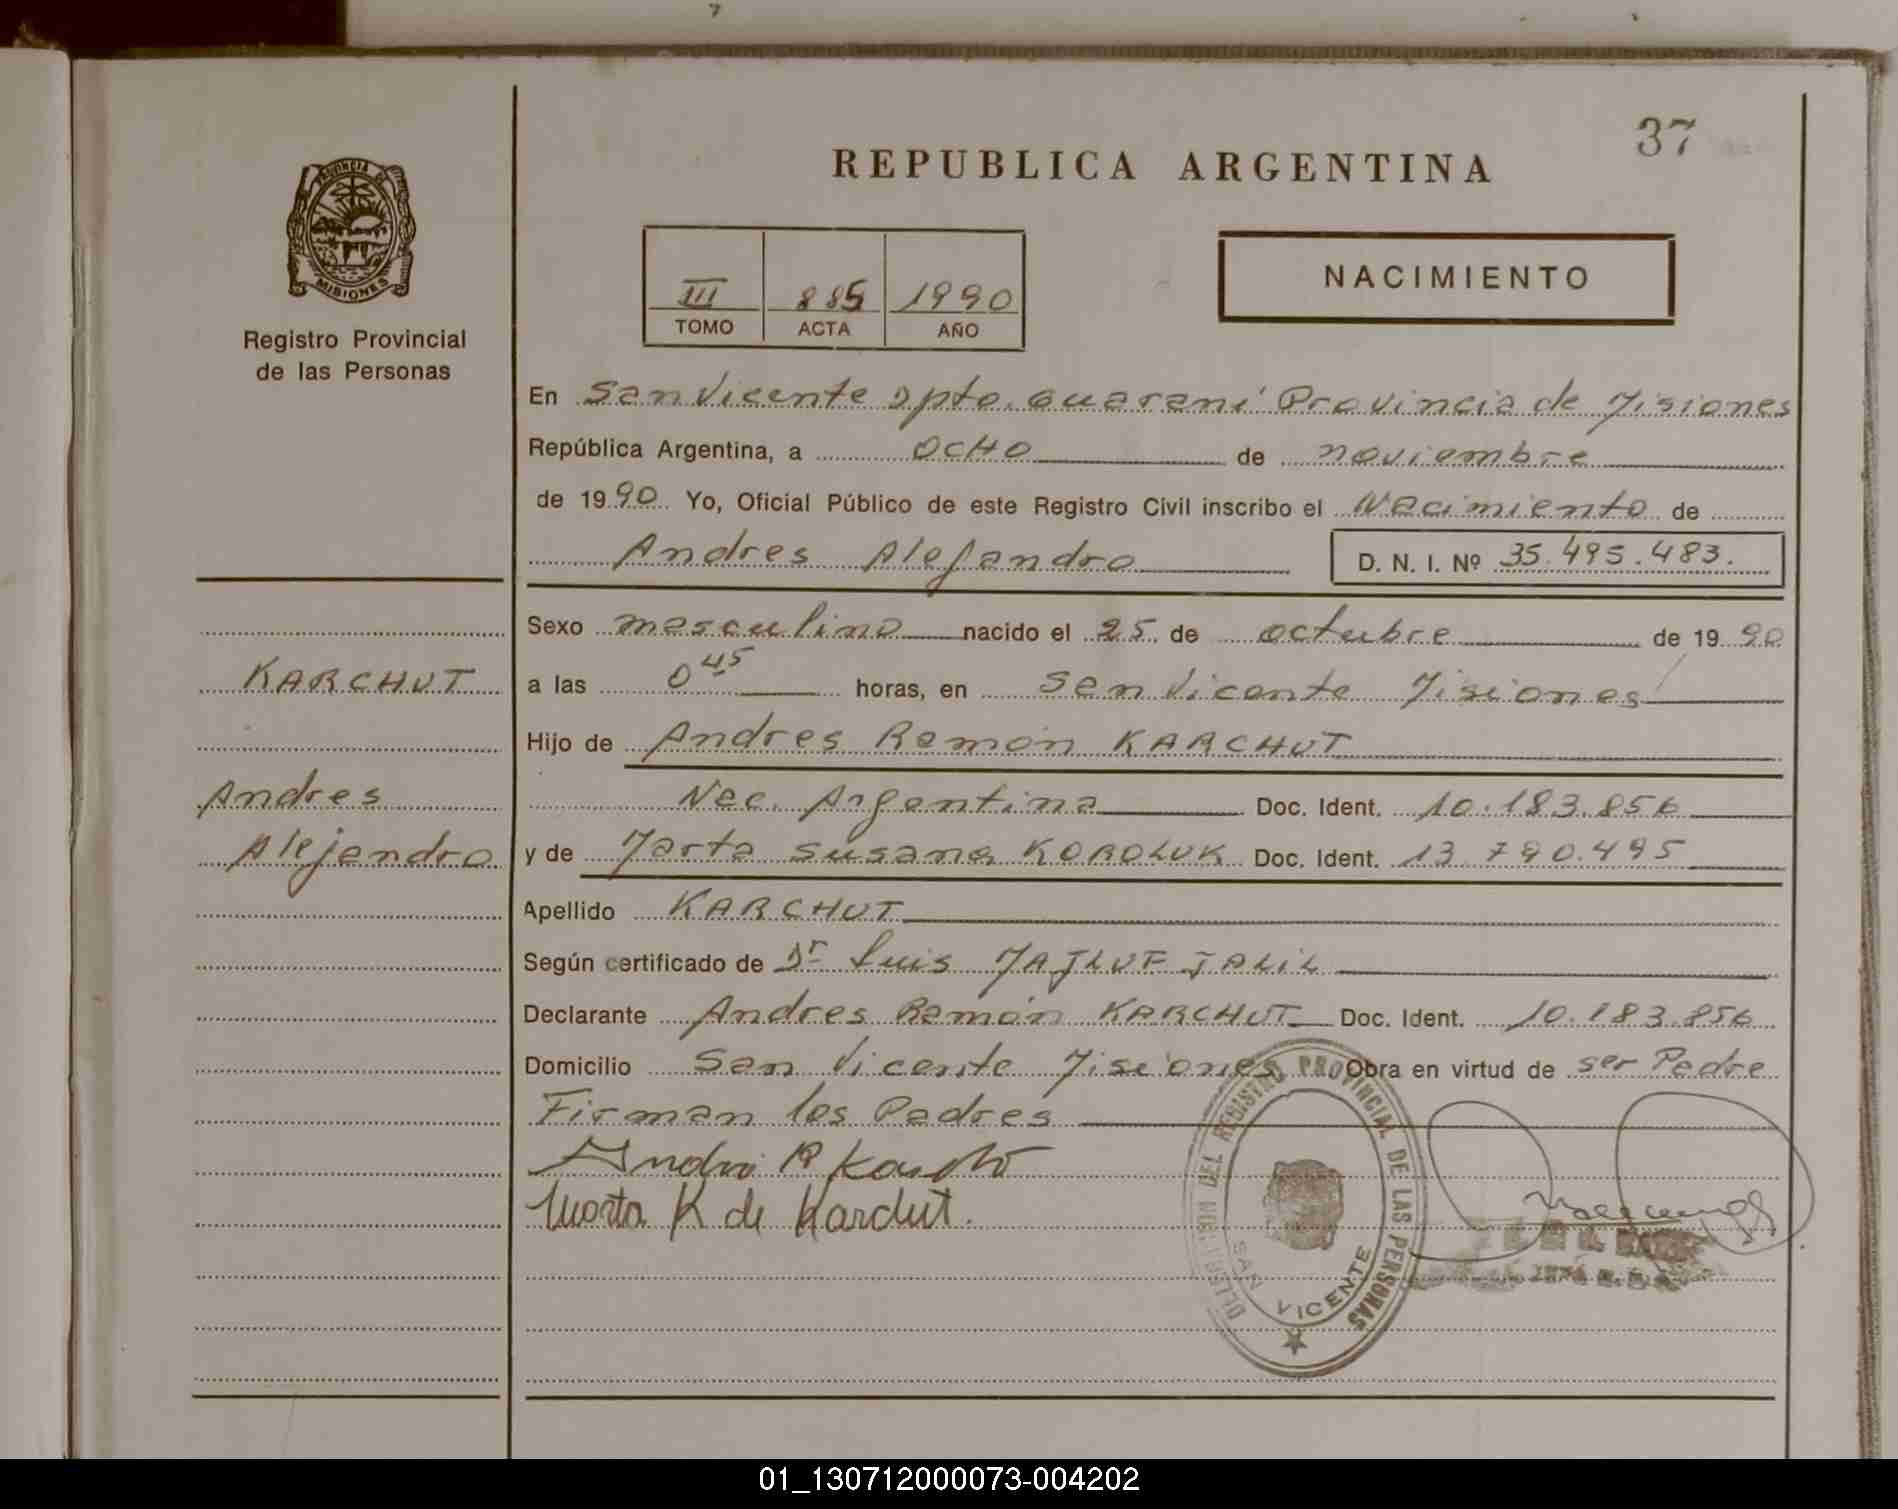 37
REPUBLICA ARGENTINA
PROVINCIA DE
MISIONES
Registro Provincial
de las Personas
III 885 1990
TOMO ACTA AÑO
NACIMIENTO
En San Vicente Dpto. Guaraní Provincia de Misiones
República Argentina, a OCHO de noviembre
de 1990 Yo, Oficial Público de este Registro Civil inscribo el Nacimiento de
Andres Alejandro D. N. I. Nº 35.495.483.
Sexo masculino nacido el 25 de octubre de 1990
KARCHUT
a las 0 45 horas, en San Vicente Misiones
Hijo de Andres Ramón KARCHUT
Andres
Nac. Argentina Doc. Ident. 10.183.856
Alejandro
y de Marta Susana KOROLUK Doc. Ident. 13.790.495
Apellido KARCHUT
Según certificado de Dr Luis MAJLUF JALIL
Declarante Andres Ramón KARCHUT Doc. Ident. 10.183.856
Domicilio San Vicente Misiones Obra en virtud de ser Padre
Firman los Padres
Marta K de Karchut.
DEL REGISTRO PROVINCIAL DE LAS PERSONAS
SAN VICENTE
01_130712000073-004202